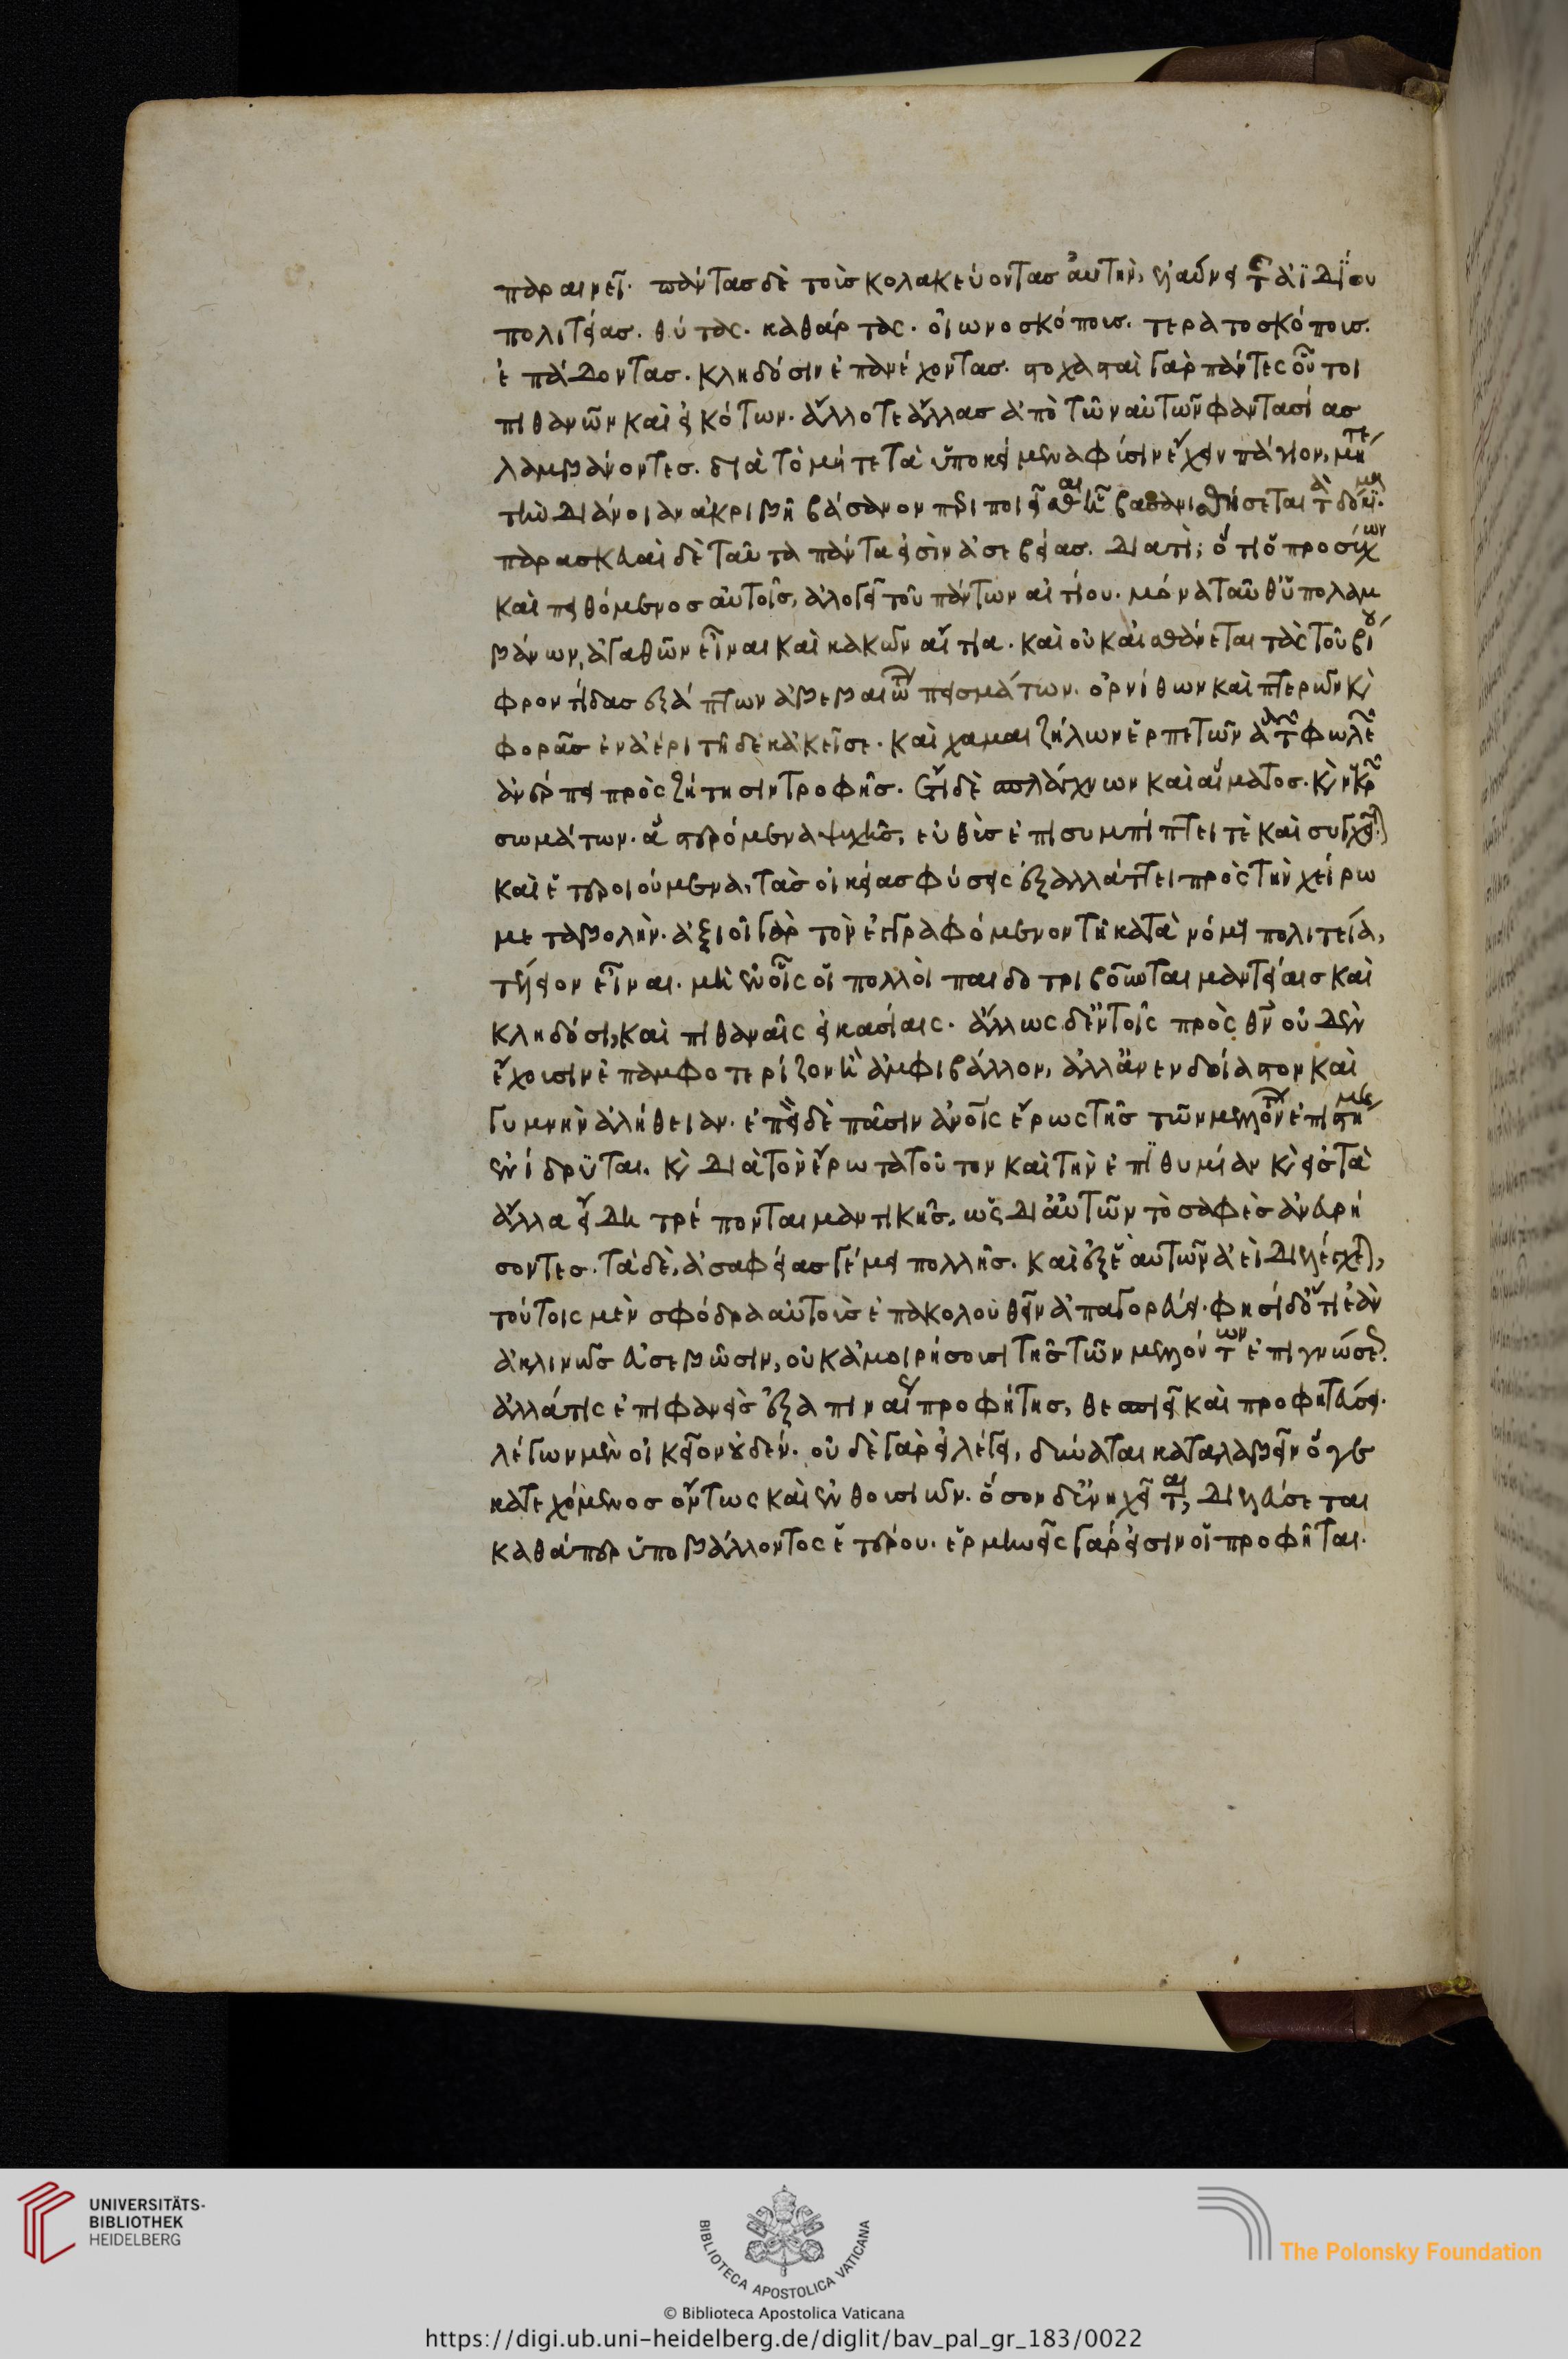 παραινεῖ. πάντας δὲ τοὺς κολακεύοντας αὐτὴν, ἐλαύνει τῆς ἀϊδίου
πολιτείας. θύτας. καθάρτας. οἰωνοσκόπους. τερατοσκόπους.
ἐπάδοντας. κληδόσιν ἐπανέχοντας. στοχασταὶ γὰρ πάντες οὗτοι
πιθανῶν καὶ εἰκότων. ἄλλοτε ἄλλας ἀπὸ τῶν αὐτῶν φαντασίας
λαμβάνοντες. διὰ τὸ μήτε τὰ ὑποκείμενα φύσιν ἔχειν πάγιον, μήτε
τὴν διάνοιαν ἀκριβῆ βάσανον περιποιεῖσθαι ἧ βασανισθήσεται τὰ δόκιμα.
παρασκευαὶ δὲ ταῦτα πάντα εἰσὶν ἀσεβείας. διατί; ὅτι ὁ προσέχων
καὶ πειθόμενος αὐτοῖς, ἀλογεῖ τοῦ πάντων αἰτίου. μόνα ταῦθ' ὑπολαμ
βάνων, ἀγαθῶν εἶναι καὶ κακῶν αἴτια. καὶ οὐκ αἰσθάνεται τὰς τοῦ βίου
φροντίδας ἐξάπτων ἀβεβαίων πεισμάτων. ὀρνίθων καὶ πτερῶν καὶ
φορᾶς ἐν ἀέρι τῆδε κἀκεῖσε. καὶ χαμαιζήλων ἑρπετῶν ἃ τῶν φωλεῶν
ἀνέρπει πρὸς ζήτησιν τροφῆς. ἔτι δὲ σπλάγχνων καὶ αἵματος. καὶ νεκρῶν
σωμάτων. ἃ στερόμενα ψυχῆς, εὐθὺς ἐπισυμπίπτει τὲ καὶ συγχεῖται.
καὶ ἑτεροιούμενα, τὰς οἰκείας φύσεις ἐξαλλάττει πρὸς τὴν χείρω
μεταβολήν. ἀξιοῖ γὰρ τὸν ἐγγραφόμενον τῇ κατὰ νόμους πολιτείᾳ,
τέλειον εἶναι. μὴ ἐν οἷς οἱ πολλοὶ παιδοτριβοῦνται μαντείαις καὶ
κληδόσι, καὶ πιθαναῖς εἰκασίαις. ἄλλως δὲ ἐν τοῖς πρὸς θεὸν οὐδὲν
ἔχουσιν ἐπαμφοτερίζον ἢ ἀμφιβάλλον, ἀλλ' ἀνενδοίαστον καὶ
γυμνὴν ἀλήθειαν. ἐπεὶ δὲ πᾶσιν ἀνθρώποις ἔρως τῆς τῶν μελλόντων ἐπιστήμης
ἐνίδρυται. καὶ διὰ τὸν ἔρωτα τοῦτον καὶ τὴν ἐπιθυμίαν καὶ εἰς τὰ
ἄλλα εἴδη τρέπονται μαντικῆς, ὡς δι' αὐτῶν τὸ σαφὲς ἀνευρή
σοντες. τὰ δὲ, ἀσαφείας γέμει πολλῆς. καὶ ἐξ ἑαυτῶν ἀεὶ διελέγχεται,
τούτοις μὲν σφόδρα αὐτοὺς ἐπακολουθεῖν ἀπαγορεύει. φησὶ δ' ὅτι ἐὰν
ἀκλινῶς εὐσεβῶσιν, οὐκ ἀμοιρήσουσι τῆς τῶν μελλόντων ἐπιγνώσεως.
ἀλλά τις ἐπιφανεὶς ἐξαπιναίως προφήτης, θεσπιεῖ καὶ προφητεύσει.
λέγων μὲν οἰκεῖον οὐδέν. οὐδὲ γὰρ εἰ λέγει, δύναται καταλαβεῖν ὅ γε
κατεχόμενος ὄντως καὶ ἐνθουσιῶν. ὅσον δ' ἐνηχεῖται, διελεύσεται
καθάπερ ὑποβάλλοντος ἑτέρου. ἑρμηνεῖς γάρ εἰσιν οἱ προφῆται.
UNIVERSITÄTS-
BIBLIOTHEK
HEIDELBERG
BIBLIOTECA APOSTOLICA VATICANA
The Polonsky Foundation
© Biblioteca Apostolica Vaticana
https://digi.ub.uni-heidelberg.de/diglit/bav_pal_gr_183/0022